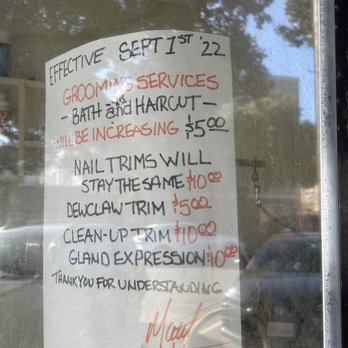 EFFECTIVE SEPT 1ST '22
GROOMING SERVICES
- BATH and HAIRCUT -
WILL BE INCREASING $5.00
NAIL TRIMS WILL
STAY THE SAME $10.00
DEWCLAW TRIM $5.00
CLEAN-UP TRIM $10.00
GLAND EXPRESSION $10.00
THANK YOU FOR UNDERSTANDING